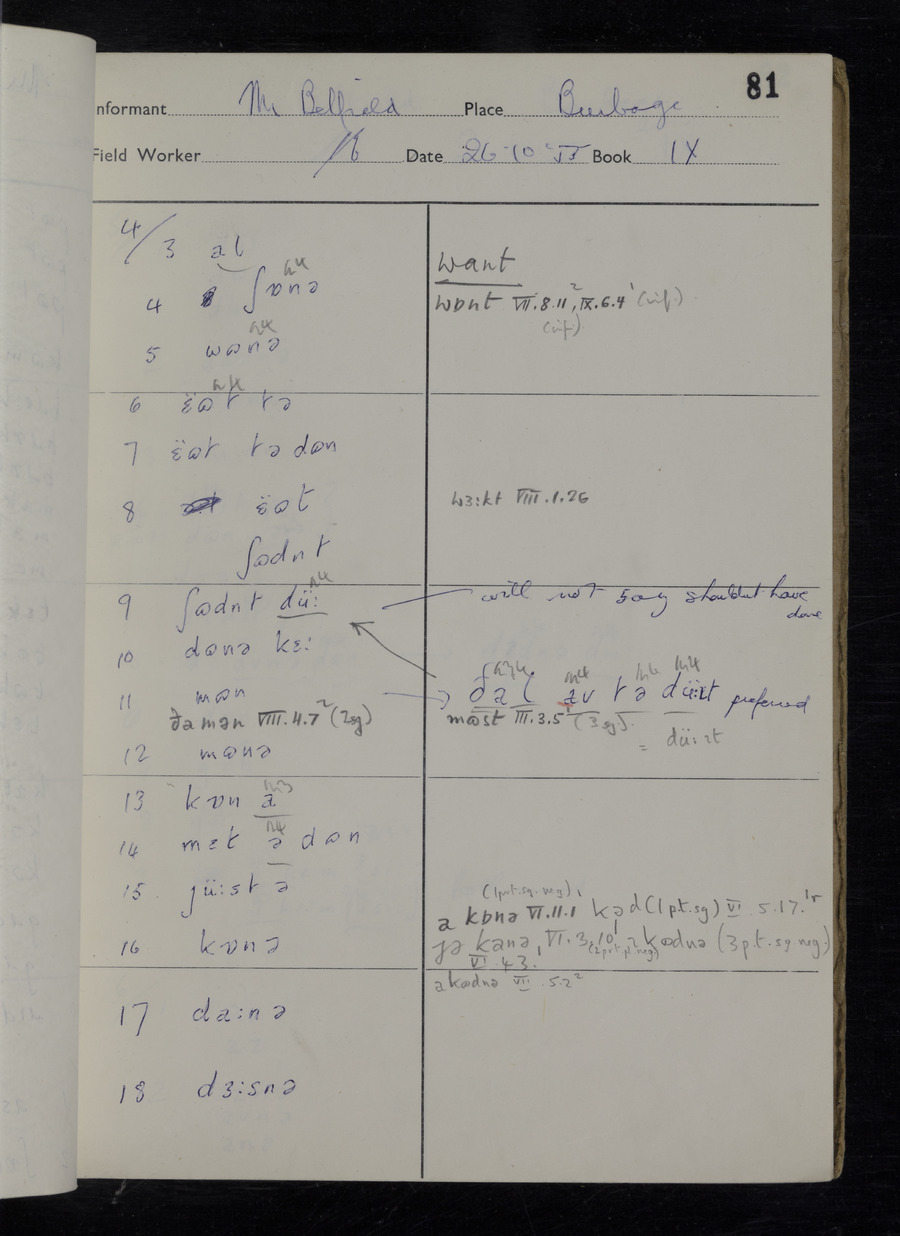 81
Informant Place Burbage
Field Worker Date 26·10· Book IX
4/3 al
4 ʃɒnə
5 wɷnə
6 ëɷt tə
7 ëɷt tə dɷn
8 ëɷt
ʃɷdnt
9 ʃɷdnt dü:
10 dɷnə kɛ:
11 mɷn
ðə mən VIII.4.7² (2sg)
12 mɷnə
13 kɒn a
14 mɛt ə dɷn
15 jü:st ə
16 kɒnə
17 da:nə
18 dɜ:snə
want
wɒnt VII.8.11², IX.6.4¹ (inf.)
(inf.)
wɜ:kt VIII.1.26
will not say shouldnt have
done
ðal av tə dü:ɪt preferred
mɷst III.3.5 (3sg).
= dü: ɪt
(1prt.sg.neg)
a kɒnə VI.11.1 kəd (1pt.sg) 5.17.
jə kanə, VI.3.10¹ kɷdnə (3p.t.sg neg.)
VI.4.3.
a kɷdnə 5.2²